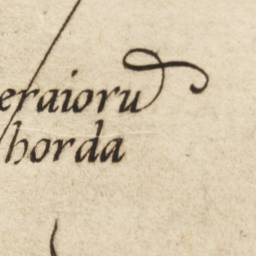 eraioru
horda